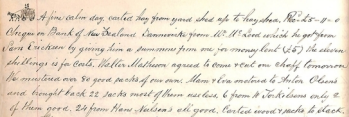 A fine calm day, carted hay from yard shed up to hay shed, Rec. £5-11-0
Cheque on Bank of New Zealand Dannevirke from Mr. McLeod which he got from
Sam Ericksen by giving him a summons from me for money lent (£5) the eleven
shillings is for costs. Walter Matheson agreed to come & cut our chaff tomorrow
We mustered over 80 good sacks of our own. Mam & Eva motored to Anton Olsen's
and brought back 22 sacks most of them useless, 6 from H Torkilsens only 2
of them good. 24 from Hans Neilson's all good. Carted wood & sacks to stack.